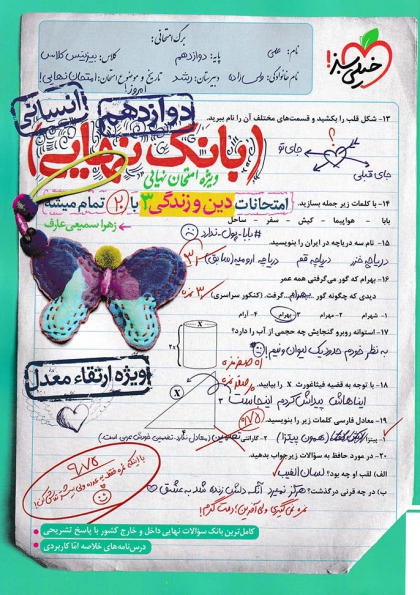 برگ امتحانی:
نام: علی
پایه: دوازدهم
کلاس: بیزینس کلاس
نام خانوادگی:
دبیرستان: رشد
تاریخ و موضوع امتحان: امتحان نهایی!
امروز!
خیلی سبز!
انسانی
دوازدهم
۱۳- شکل قلب را بکشید و قسمت‌های مختلف آن را نام ببرید.
؟
جای تو
جای قبلی
بانک نهایی
ویژه امتحان نهایی
امتحانات دین و زندگی ۳ با ۲۰ تمام میشه
زهرا سمیعی عارف
۱۴- با کلمات زیر جمله بسازید.
بابا - هواپیما - کیش - سفر - ساحل
#بابا-پول-ندارد
۱۵- نام سه دریاچه در ایران را بنویسید.
دریاچه خزر دریاچه قم دریاچه ارومیه (سابق)
۱۶- بهرام که گور می‌گرفتی همه عمر
دیدی که چگونه گور بهرام گرفت. (کنکور سراسری)
۱- شهرام ۲- مهرام ۳- بهرام ۴- آرام
۱۷- استوانه روبرو گنجایش چه حجمی از آب را دارد؟
به نظر خودم حدود یک لیوان و نیم!
X
2x
ویژه ارتقاء معدل
۱۸- با توجه به قضیه فیثاغورث X را بیابید.
X
۳
ایناهاش پیداش کردم اینجاست
۱۹- معادل فارسی کلمات زیر را بنویسید.
۱- پیتزا (همون پیتزا)
۲۰- در مورد حافظ به سؤالات زیر جواب بدهید.
الف) لقب او چه بود؟ لسان الغیب
ب) در چه قرنی درگذشت؟ هرگز نمیرد آنکه دلش زنده شد به عشق
۹/۷۵
کامل‌ترین بانک سؤالات نهایی داخل و خارج کشور با پاسخ تشریحی
درس‌نامه‌های خلاصه امّا کاربردی